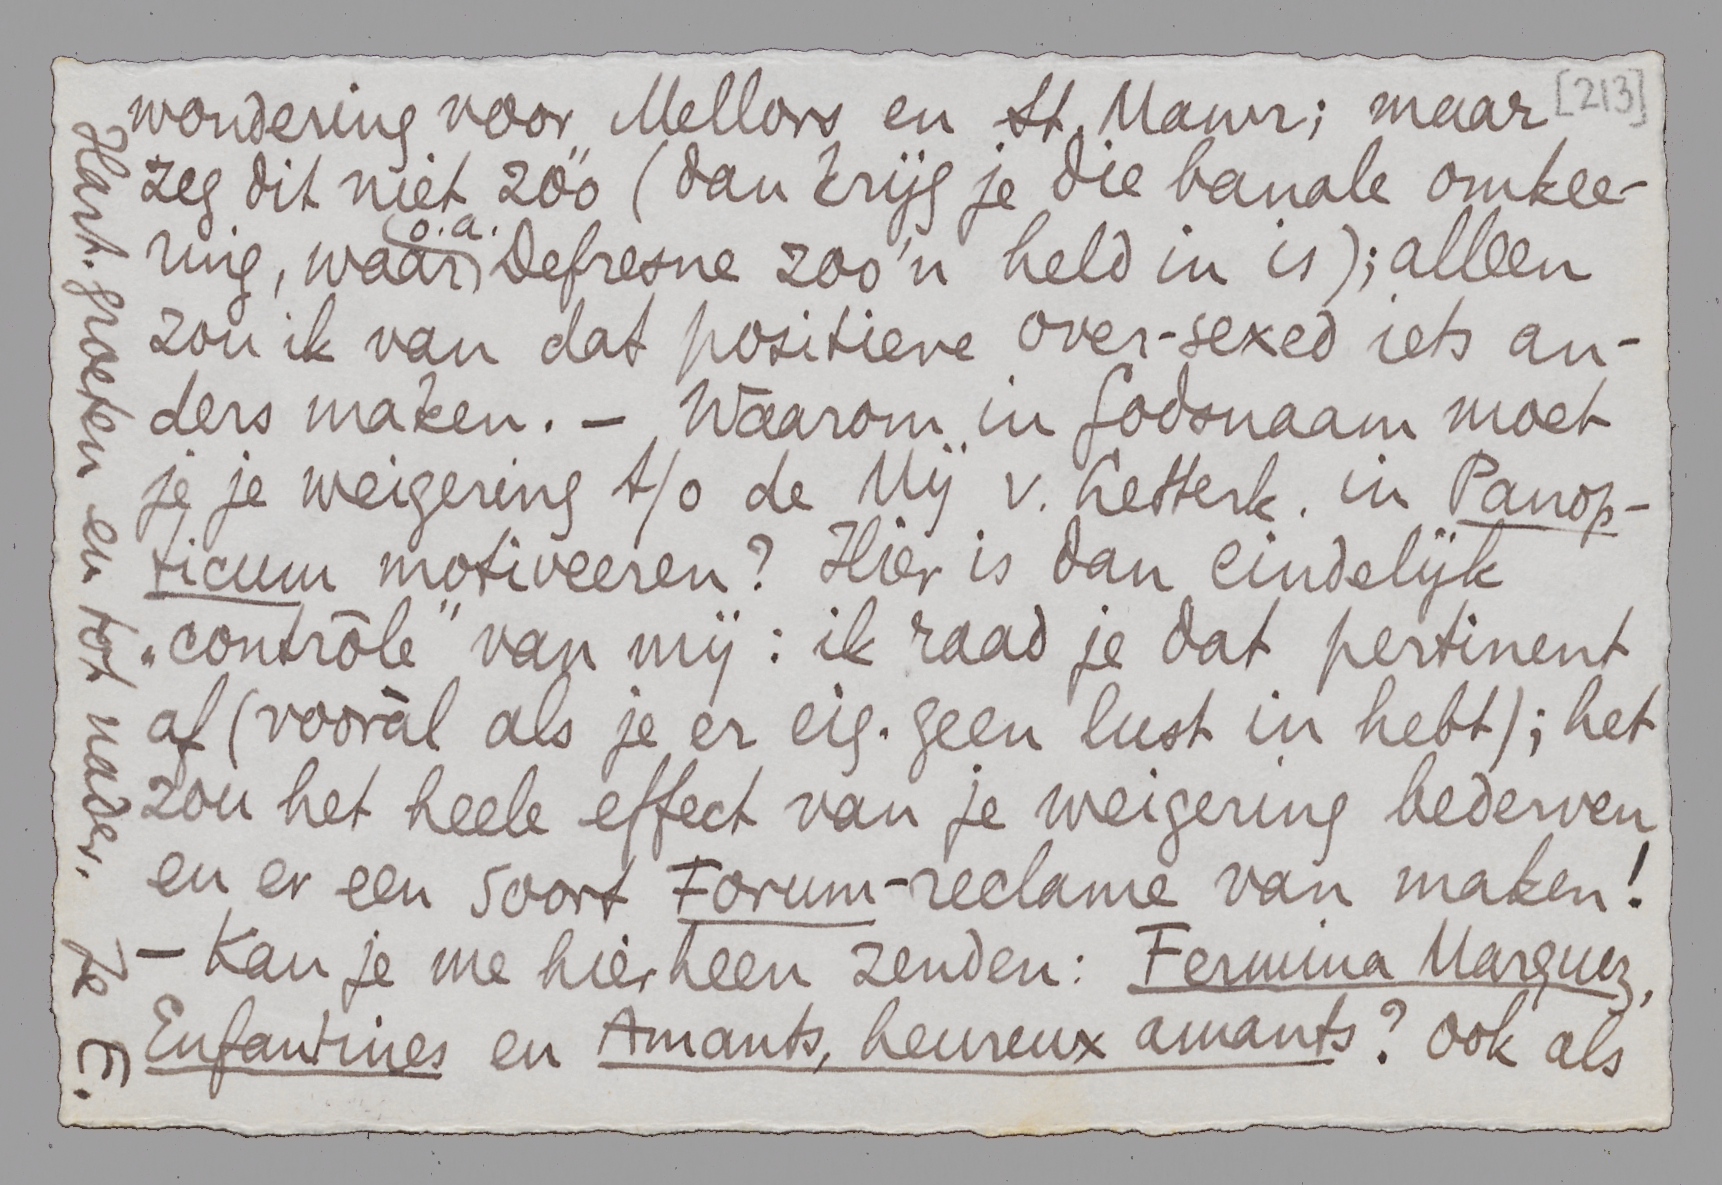 [213]
wondering voor Mellors en St. Mawr; maar
zeg dit niet zóó (dan krijg je die banale omkee-
ring, waar o.a. Defresne zoo'n held in is); alleen
zou ik van dat positieve over-sexed iets an-
ders maken. – Waarom in Godsnaam moet
je je weigering t/o de Mij v. Letterk. in Panop-
ticum motiveeren? Hier is dan eindelijk
„contrôle" van mij: ik raad je dat pertinent
af (vooràl als je er eig. geen lust in hebt); het
zou het heele effect van je weigering bederven
en er een soort Forum-reclame van maken!
– Kan je me hierheen zenden: Fermina Marquez,
Enfantines en Amants, heureux amants? Ook als
Hart. groeten en tot nader. Je E.